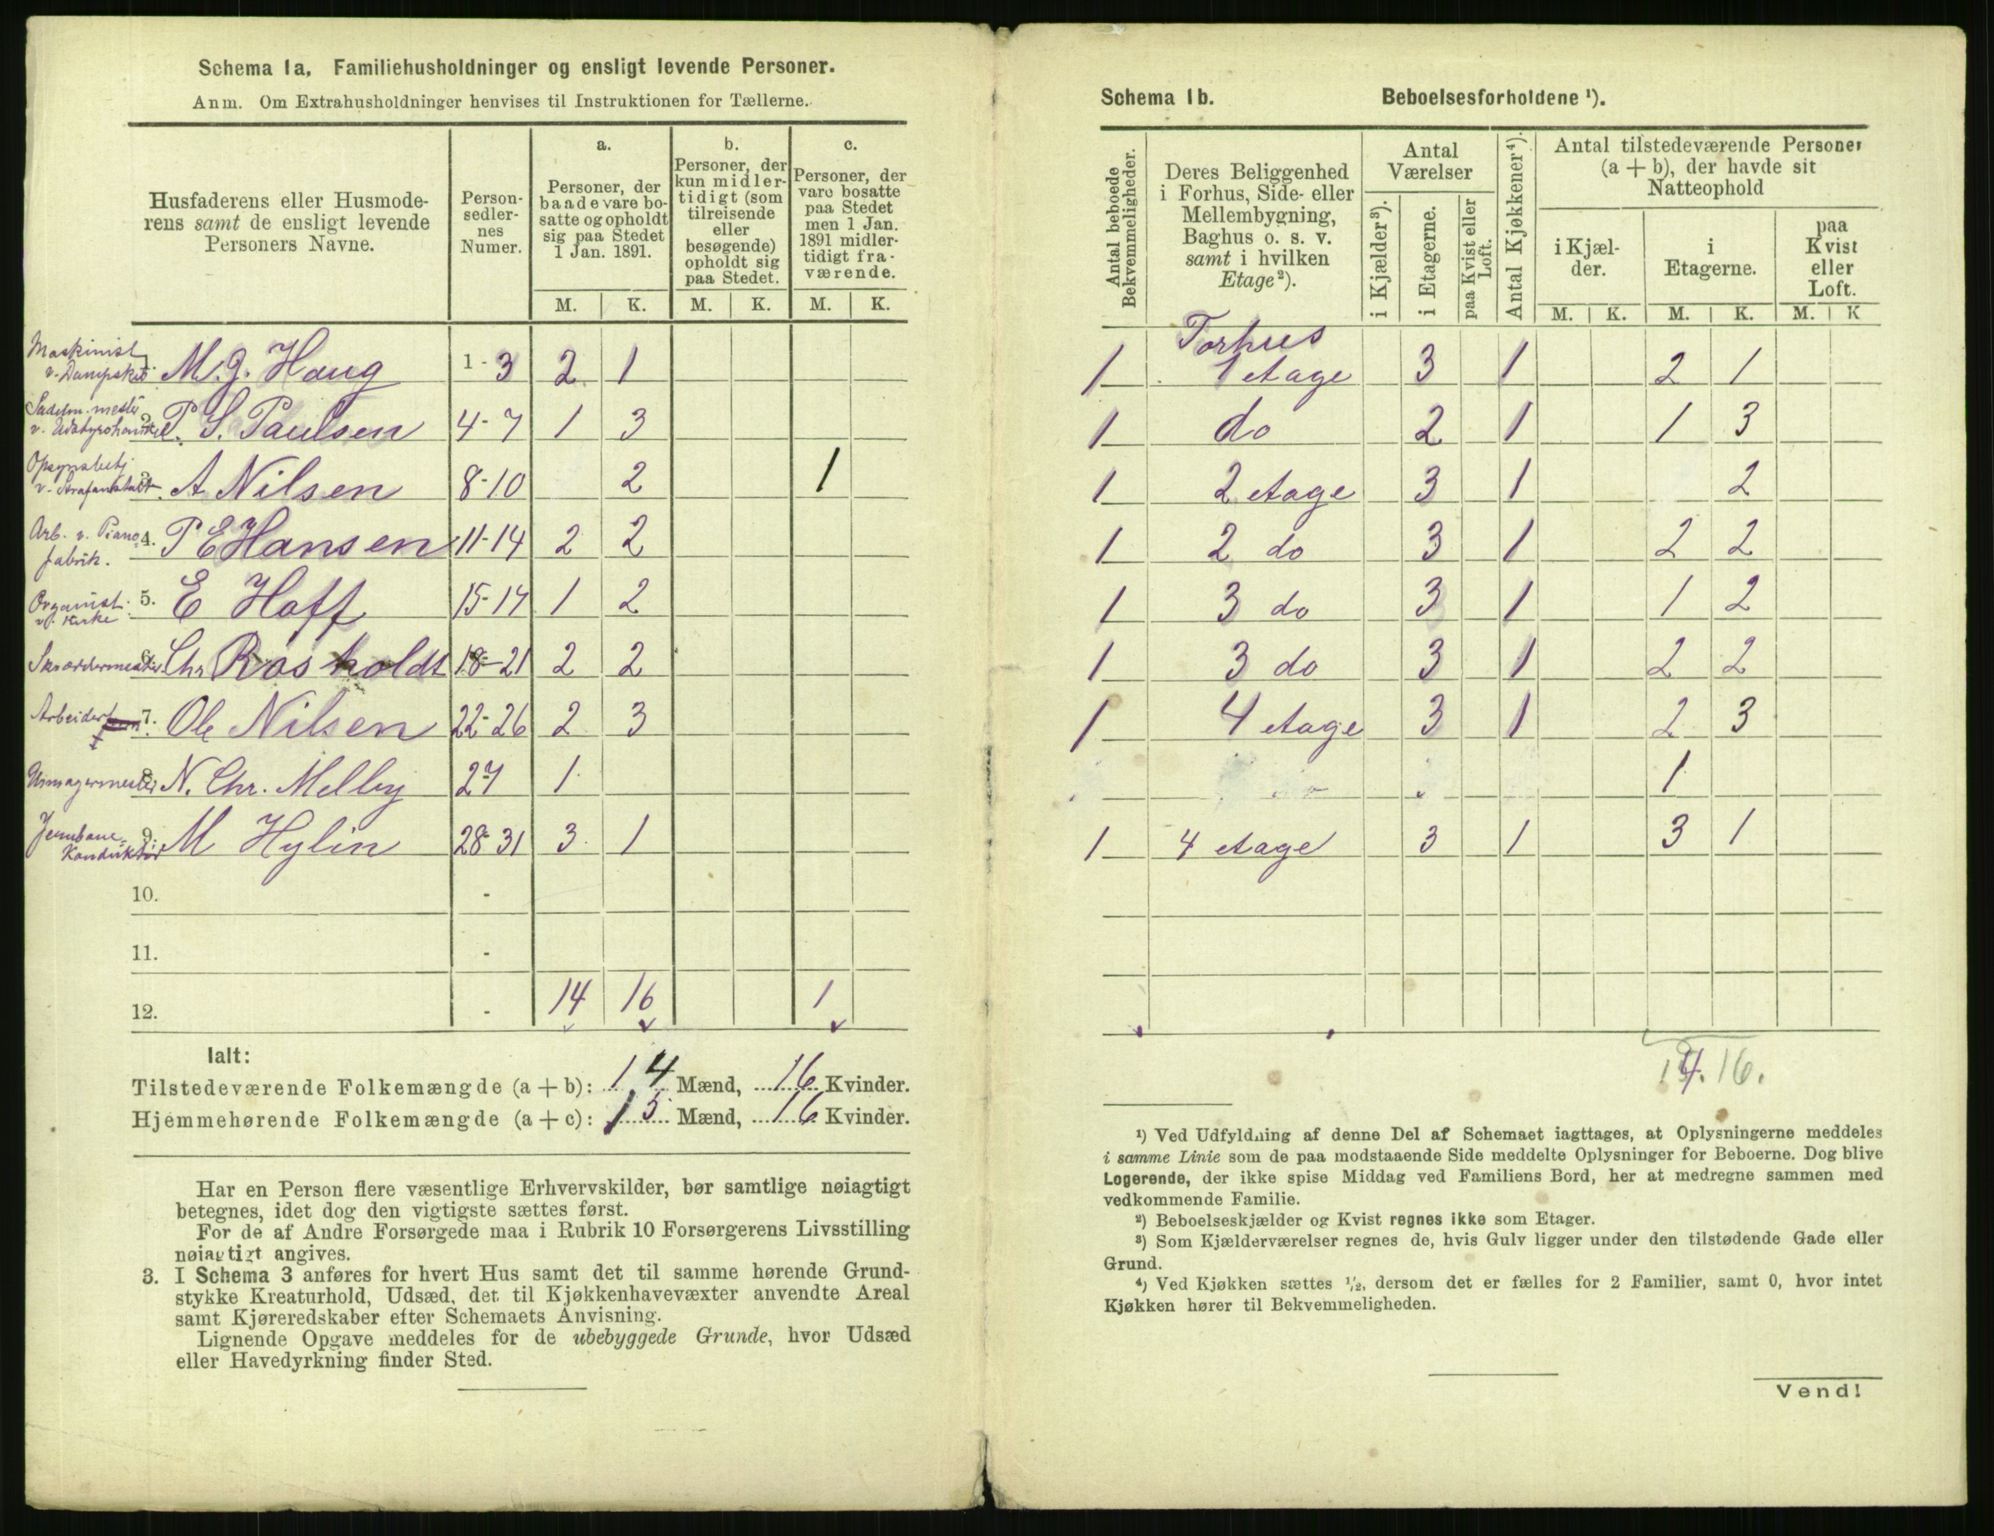 Schema 1a. Familiehusholdninger og ensligt levende Personer.
Anm. Om Extrahusholdninger henvises til Instruktionen for Tællerne.
Husfaderens eller Husmoderens samt de ensligt levende Personers Navne.
Personsedlernes Numer.
a. Personer, der baade vare bosatte og opholdt sig paa Stedet 1 Jan. 1891.
b. Personer, der kun midlertidigt (som tilreisende eller besøgende) opholdt sig paa Stedet.
c. Personer, der vare bosatte paa Stedet men 1 Jan. 1891 midlertidigt fraværende.
M. K. M. K. M. K.
Maskinist v. Dampskib M. J. Haug 1-3 2 1
P. S. Paulsen 4-7 1 3
v. Strafanstalt A Nilsen 8-10 2 1
Arb. v. Piano fabrik. 4. P E Hansen 11-14 2 2
Organist v. Kirke 5. E Hoff 15-17 1 2
Skrædermester 6. Chr Rosholdt 18-21 2 2
Arbeider 7. Ole Nilsen 22-26 2 3
Urmagermester 8. N. Chr. Melby 27 1
Jernbane Konduktør 9. M Hylin 28-31 3 1
10. -
11. -
12. - 14 16 1
Ialt:
Tilstedeværende Folkemængde (a + b): 14 Mænd, 16 Kvinder.
Hjemmehørende Folkemængde (a + c): 15 Mænd, 16 Kvinder.
Har en Person flere væsentlige Erhvervskilder, bør samtlige nøiagtigt
betegnes, idet dog den vigtigste sættes først.
For de af Andre Forsørgede maa i Rubrik 10 Forsørgerens Livsstilling
nøiagtigt angives.
3. I Schema 3 anføres for hvert Hus samt det til samme hørende Grund-
stykke Kreaturhold, Udsæd, det til Kjøkkenhavevæxter anvendte Areal
samt Kjøreredskaber efter Schemaets Anvisning.
Lignende Opgave meddeles for de ubebyggede Grunde, hvor Udsæd
eller Havedyrkning finder Sted.
Schema 1b. Beboelsesforholdene ¹).
Antal beboede Bekvemmeligheder.
Deres Beliggenhed i Forhus, Side- eller Mellembygning, Baghus o. s. v. samt i hvilken Etage²).
Antal Værelser
i Kjælder³).
i Etagerne.
paa Kvist eller Loft.
Antal Kjøkkener⁴).
Antal tilstedeværende Personer (a + b), der havde sit Natteophold
i Kjælder.
i Etagerne.
paa Kvist eller Loft.
M. K. M. K. M. K
Forhus
1 1 Etage 3 1 2 1
1 do 2 1 1 3
1 2 Etage 3 1 2
1 2 do 3 1 2 2
1 3 do 3 1 1 2
1 3 do 3 1 2 2
1 4 Etage 3 1 2 3
1
1 4 Etage 3 1 3 1
14. 16.
¹) Ved Udfyldning af denne Del af Schemaet iagttages, at Oplysningerne meddeles
i samme Linie som de paa modstaaende Side meddelte Oplysninger for Beboerne. Dog blive
Logerende, der ikke spise Middag ved Familiens Bord, her at medregne sammen med
vedkommende Familie.
²) Beboelseskjælder og Kvist regnes ikke som Etager.
³) Som Kjælderværelser regnes de, hvis Gulv ligger under den tilstødende Gade eller
Grund.
⁴) Ved Kjøkken sættes ½, dersom det er fælles for 2 Familier, samt 0, hvor intet
Kjøkken hører til Bekvemmeligheden.
Vend!